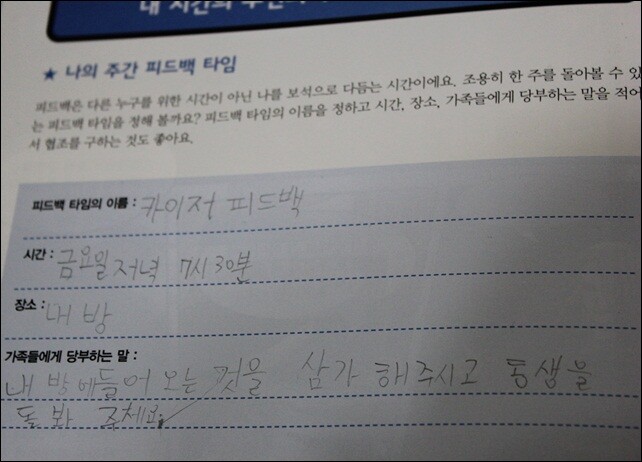 내 시간의
★ 나의 주간 피드백 타임
피드백은 다른 누구를 위한 시간이 아닌 나를 보석으로 다듬는 시간이에요. 조용히 한 주를 돌아볼 수 있
는 피드백 타임을 정해 볼까요? 피드백 타임의 이름을 정하고 시간, 장소, 가족들에게 당부하는 말을 적어
서 협조를 구하는 것도 좋아요.
피드백 타임의 이름 : 카이저 피드백
시간 : 금요일 저녁 7시 30분
장소 : 내 방
가족들에게 당부하는 말 :
내 방에 들어 오는 것을 삼가 해주시고 동생을
돌봐 주세요